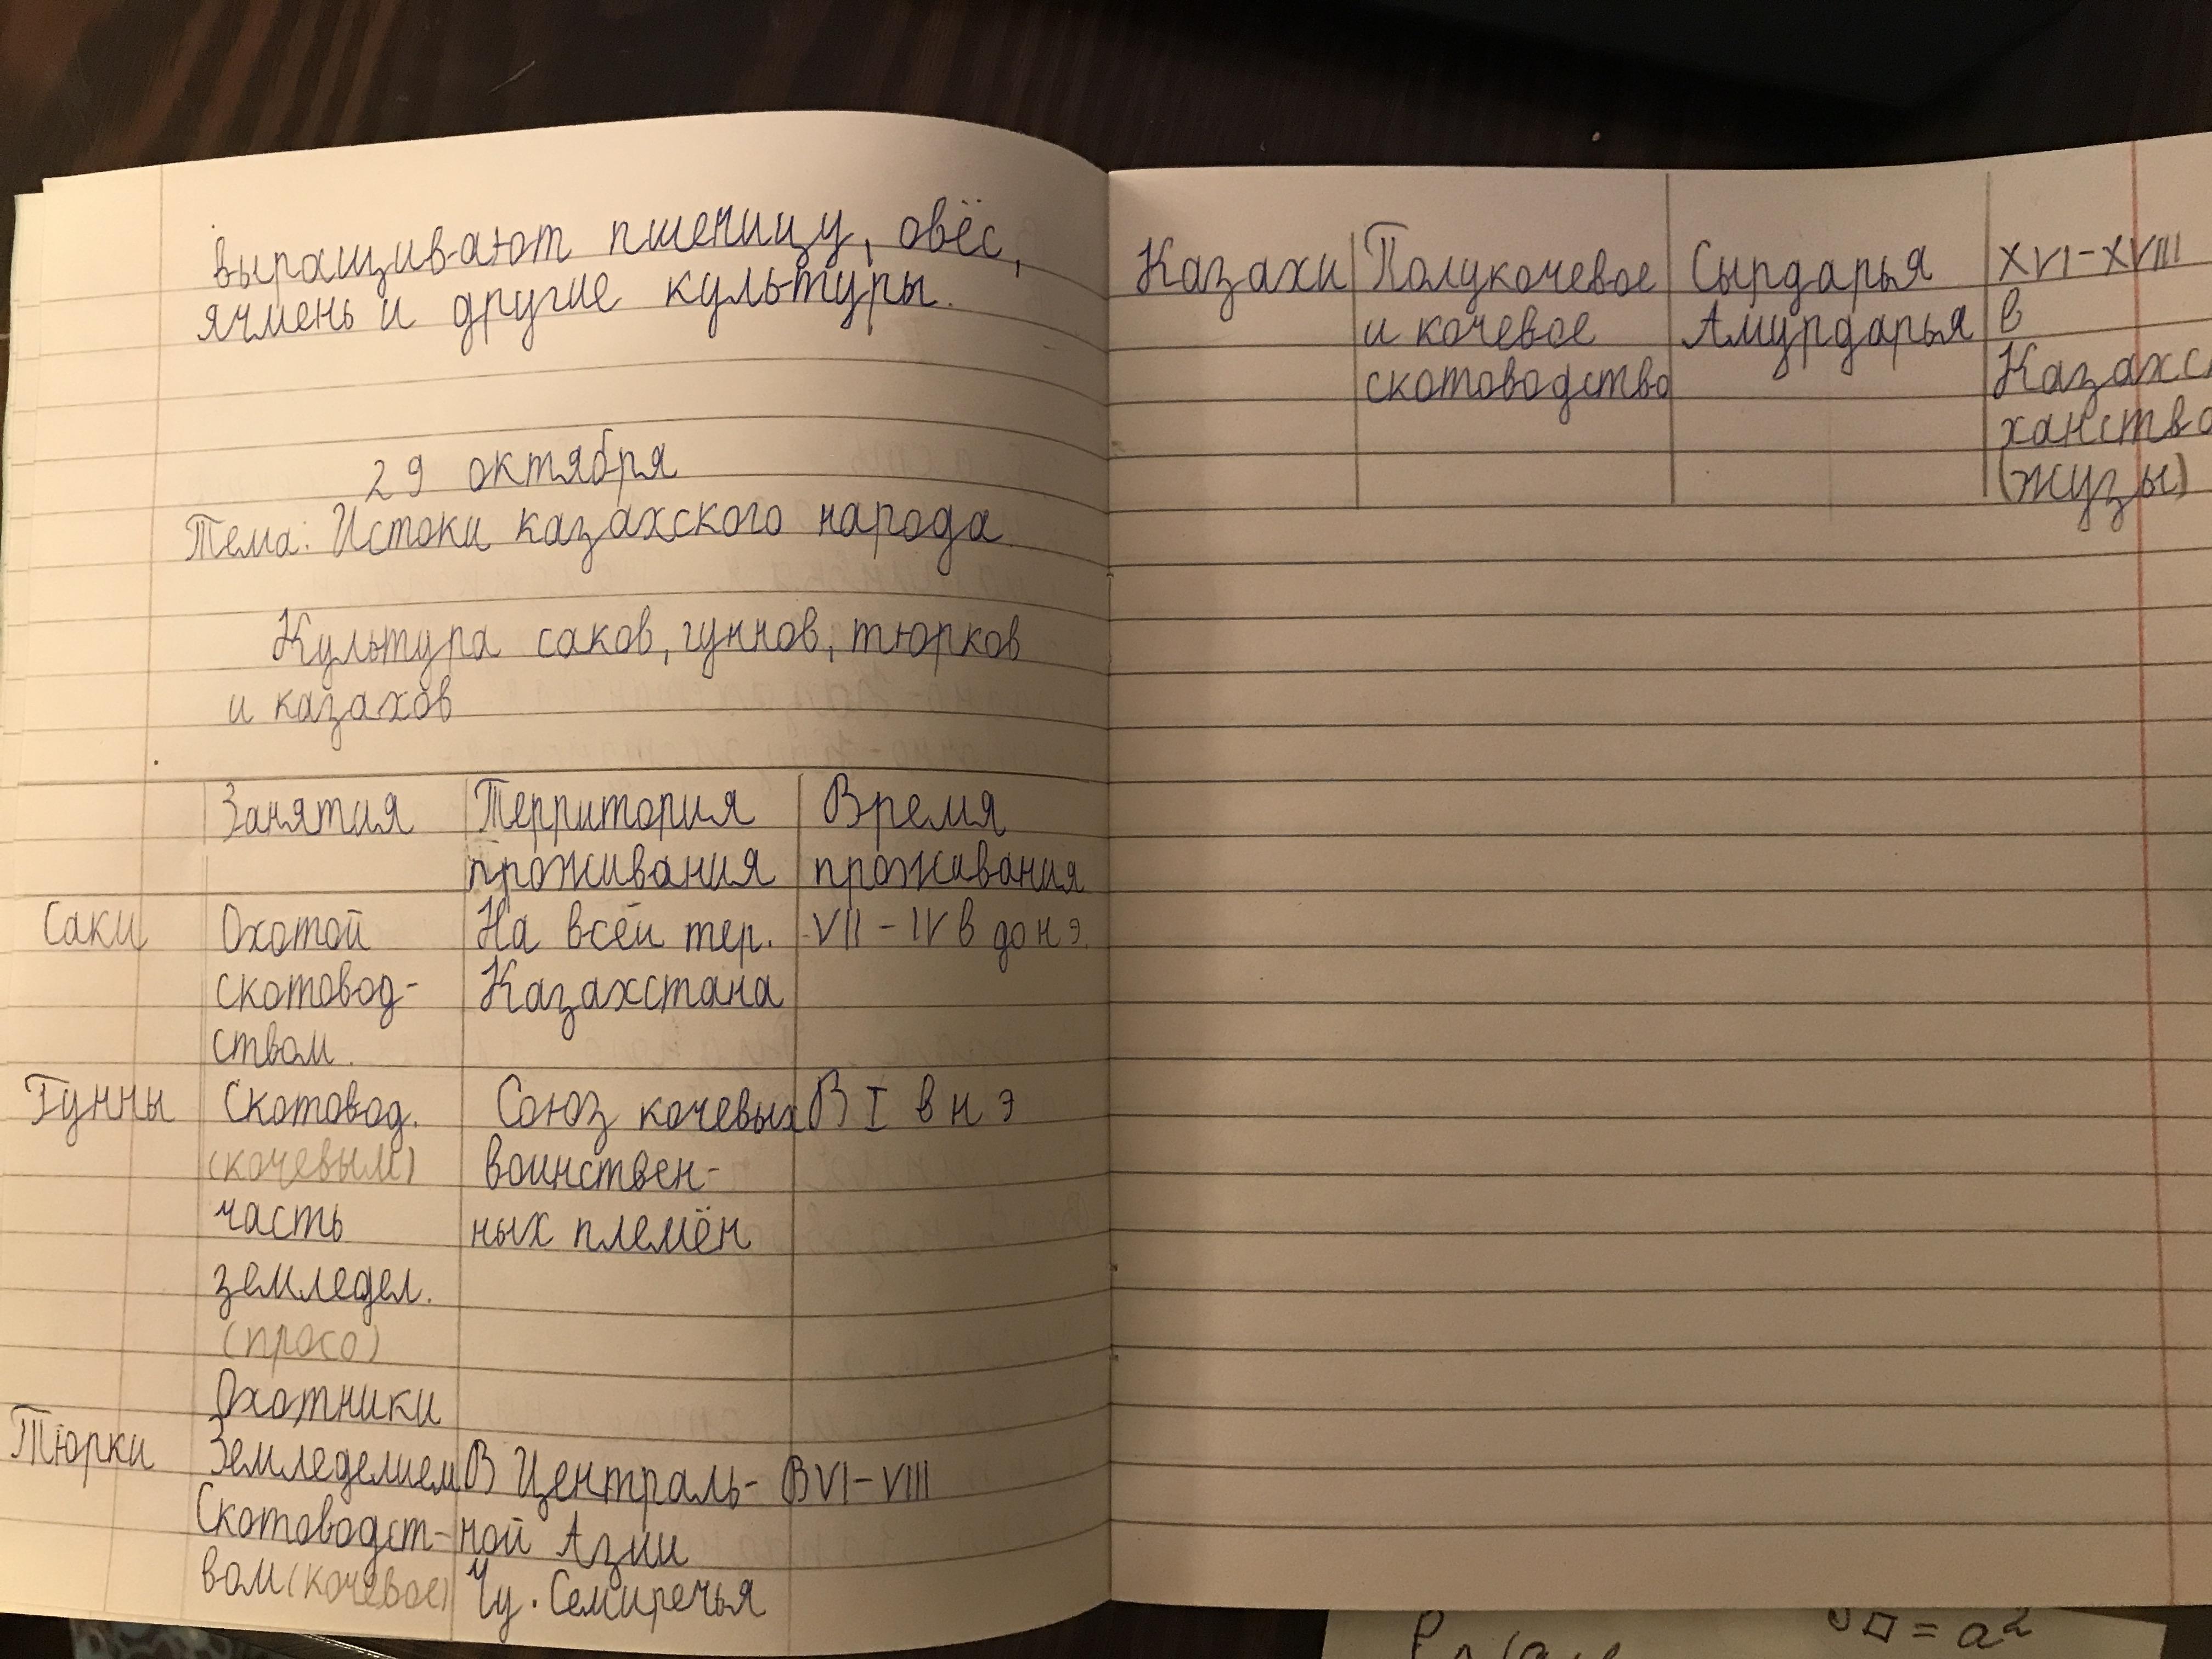 выращивают пшеницу, овёс,
ячмень и другие культуры.
29 октября
Тема: Истоки казахского народа
Культура саков, гуннов, тюрков
и казахов
Занятия Территория Время
проживания проживания
Саки Охотой На всей тер. VII - IV в до н э.
скотовод- Казахстана
ством.
Гунны Скотовод. Союз кочевых В I в н э
(кочевым) воинствен-
часть ных племён
земледел.
(просо)
Охотники
Тюрки Земледелием В Централь- В VI - VIII
Скотоводст- ной Азии
вом (кочевое) Чу. Семиречья
Казахи Полукочевое Сырдарья XVI - XVIII
и кочевое Амурдарья в
скотоводство
ханство
(жузы)
= a2